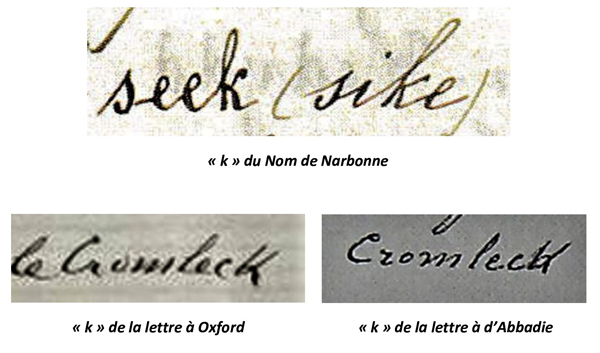 seek (sike)
« k » du Nom de Narbonne
le Cromleck
Cromleck
« k » de la lettre à Oxford
« k » de la lettre à d’Abbadie